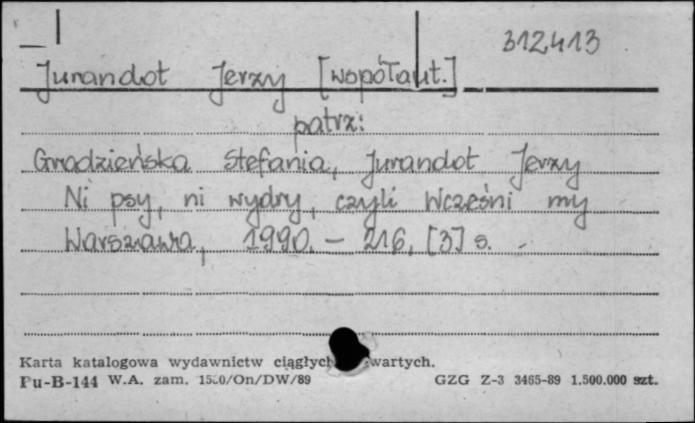 312413
Jurandot Jerzy [współaut.]
patrz:
Grodzieńska Stefania, Jurandot Jerzy
Ni psy, ni wydry, czyli Wcześni my
Warszawa, 1990. - 216, [3] s.
Karta katalogowa wydawnictw ciągłych wartych.
Pu-B-144 W.A. zam. /On/DW/89 GZG Z-3 3465-89 1.500.000 szt.